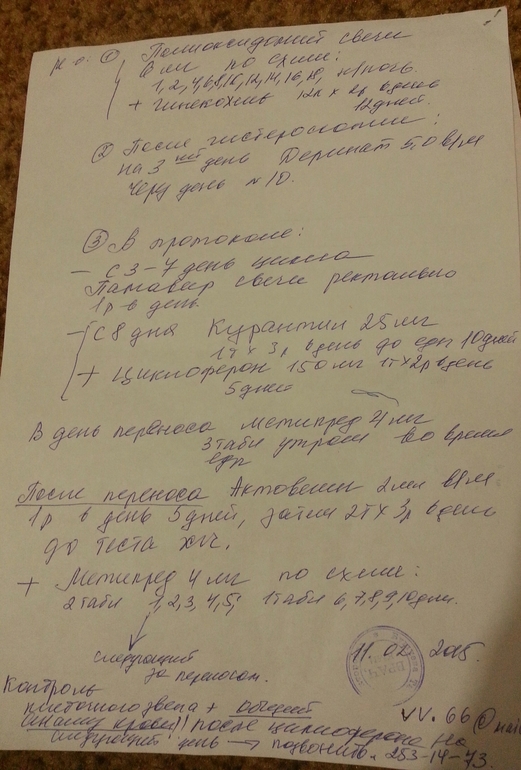 ① Полиоксидоний свечи
6 мг по схеме:
1, 2, 4, 6, 8, 10, 12, 14, 16, 18, н/ночь.
+ Гинекохил 12 х 2р в день
12 дней.
② После гистероскопии:
на 3ий день Деринат 5,0 в/м
через день №10.
③ В протоколе:
– С 3-7 день цикла
Панавир свечи ректально
1р в день
– С 8 дня Курантил 25 мг
1т х 3р в день до еды 10 дней
+ Циклоферон 150 мг 1т х 2р в день
5 дней
В день переноса Метипред 4 мг
3 табл утром во время
еды
После переноса Актовегин 2 мл в/м
1р в день 5 дней, затем 2т х 3р в день
до теста ХГЧ.
+ Метипред 4 мг по схеме:
2 табл 1, 2, 3, 4, 5; 1 табл 6, 7, 8, 9, 10 дни.
следующий
за переносом.
11.02.2015
ВРАЧ
Контроль
клеточного звена + общий
анализ крови!! после циклоферона на
следующий день → позвонить. 253-14-73.
VV.66@mail